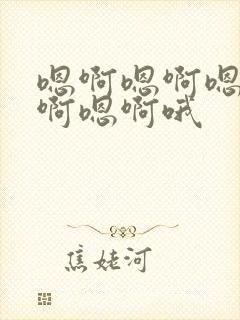 嗯啊嗯啊嗯
啊嗯啊哦
焦姥河